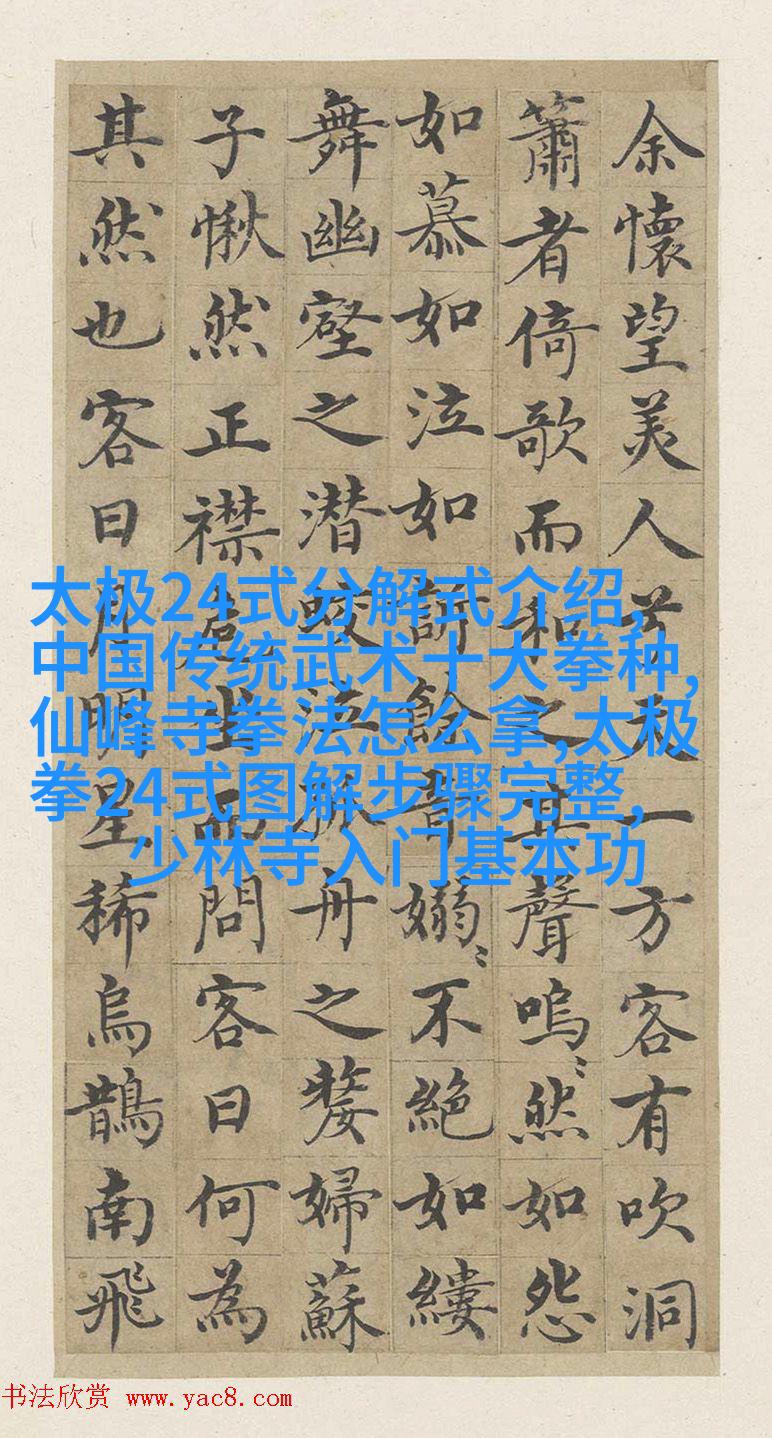 余懷望美人兮天一方客有吹洞
簫者倚歌而和之其聲嗚〻然如怨
如慕如泣如訴餘音嫋〻不絶如縷
舞幽壑之潜蛟泣孤舟之嫠婦蘇
子愀然正襟危坐而問客曰何為
其然也客曰月明星稀烏鵲南飛
太极24式分解式介绍,
中国传统武术十大拳种,
仙峰寺拳法怎么拿,太极
拳24式图解步骤完整,
少林寺入门基本功
书法欣赏 www.yac8.com